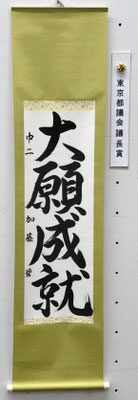 東京都議会議長賞
大願成就
中二 加藤碧